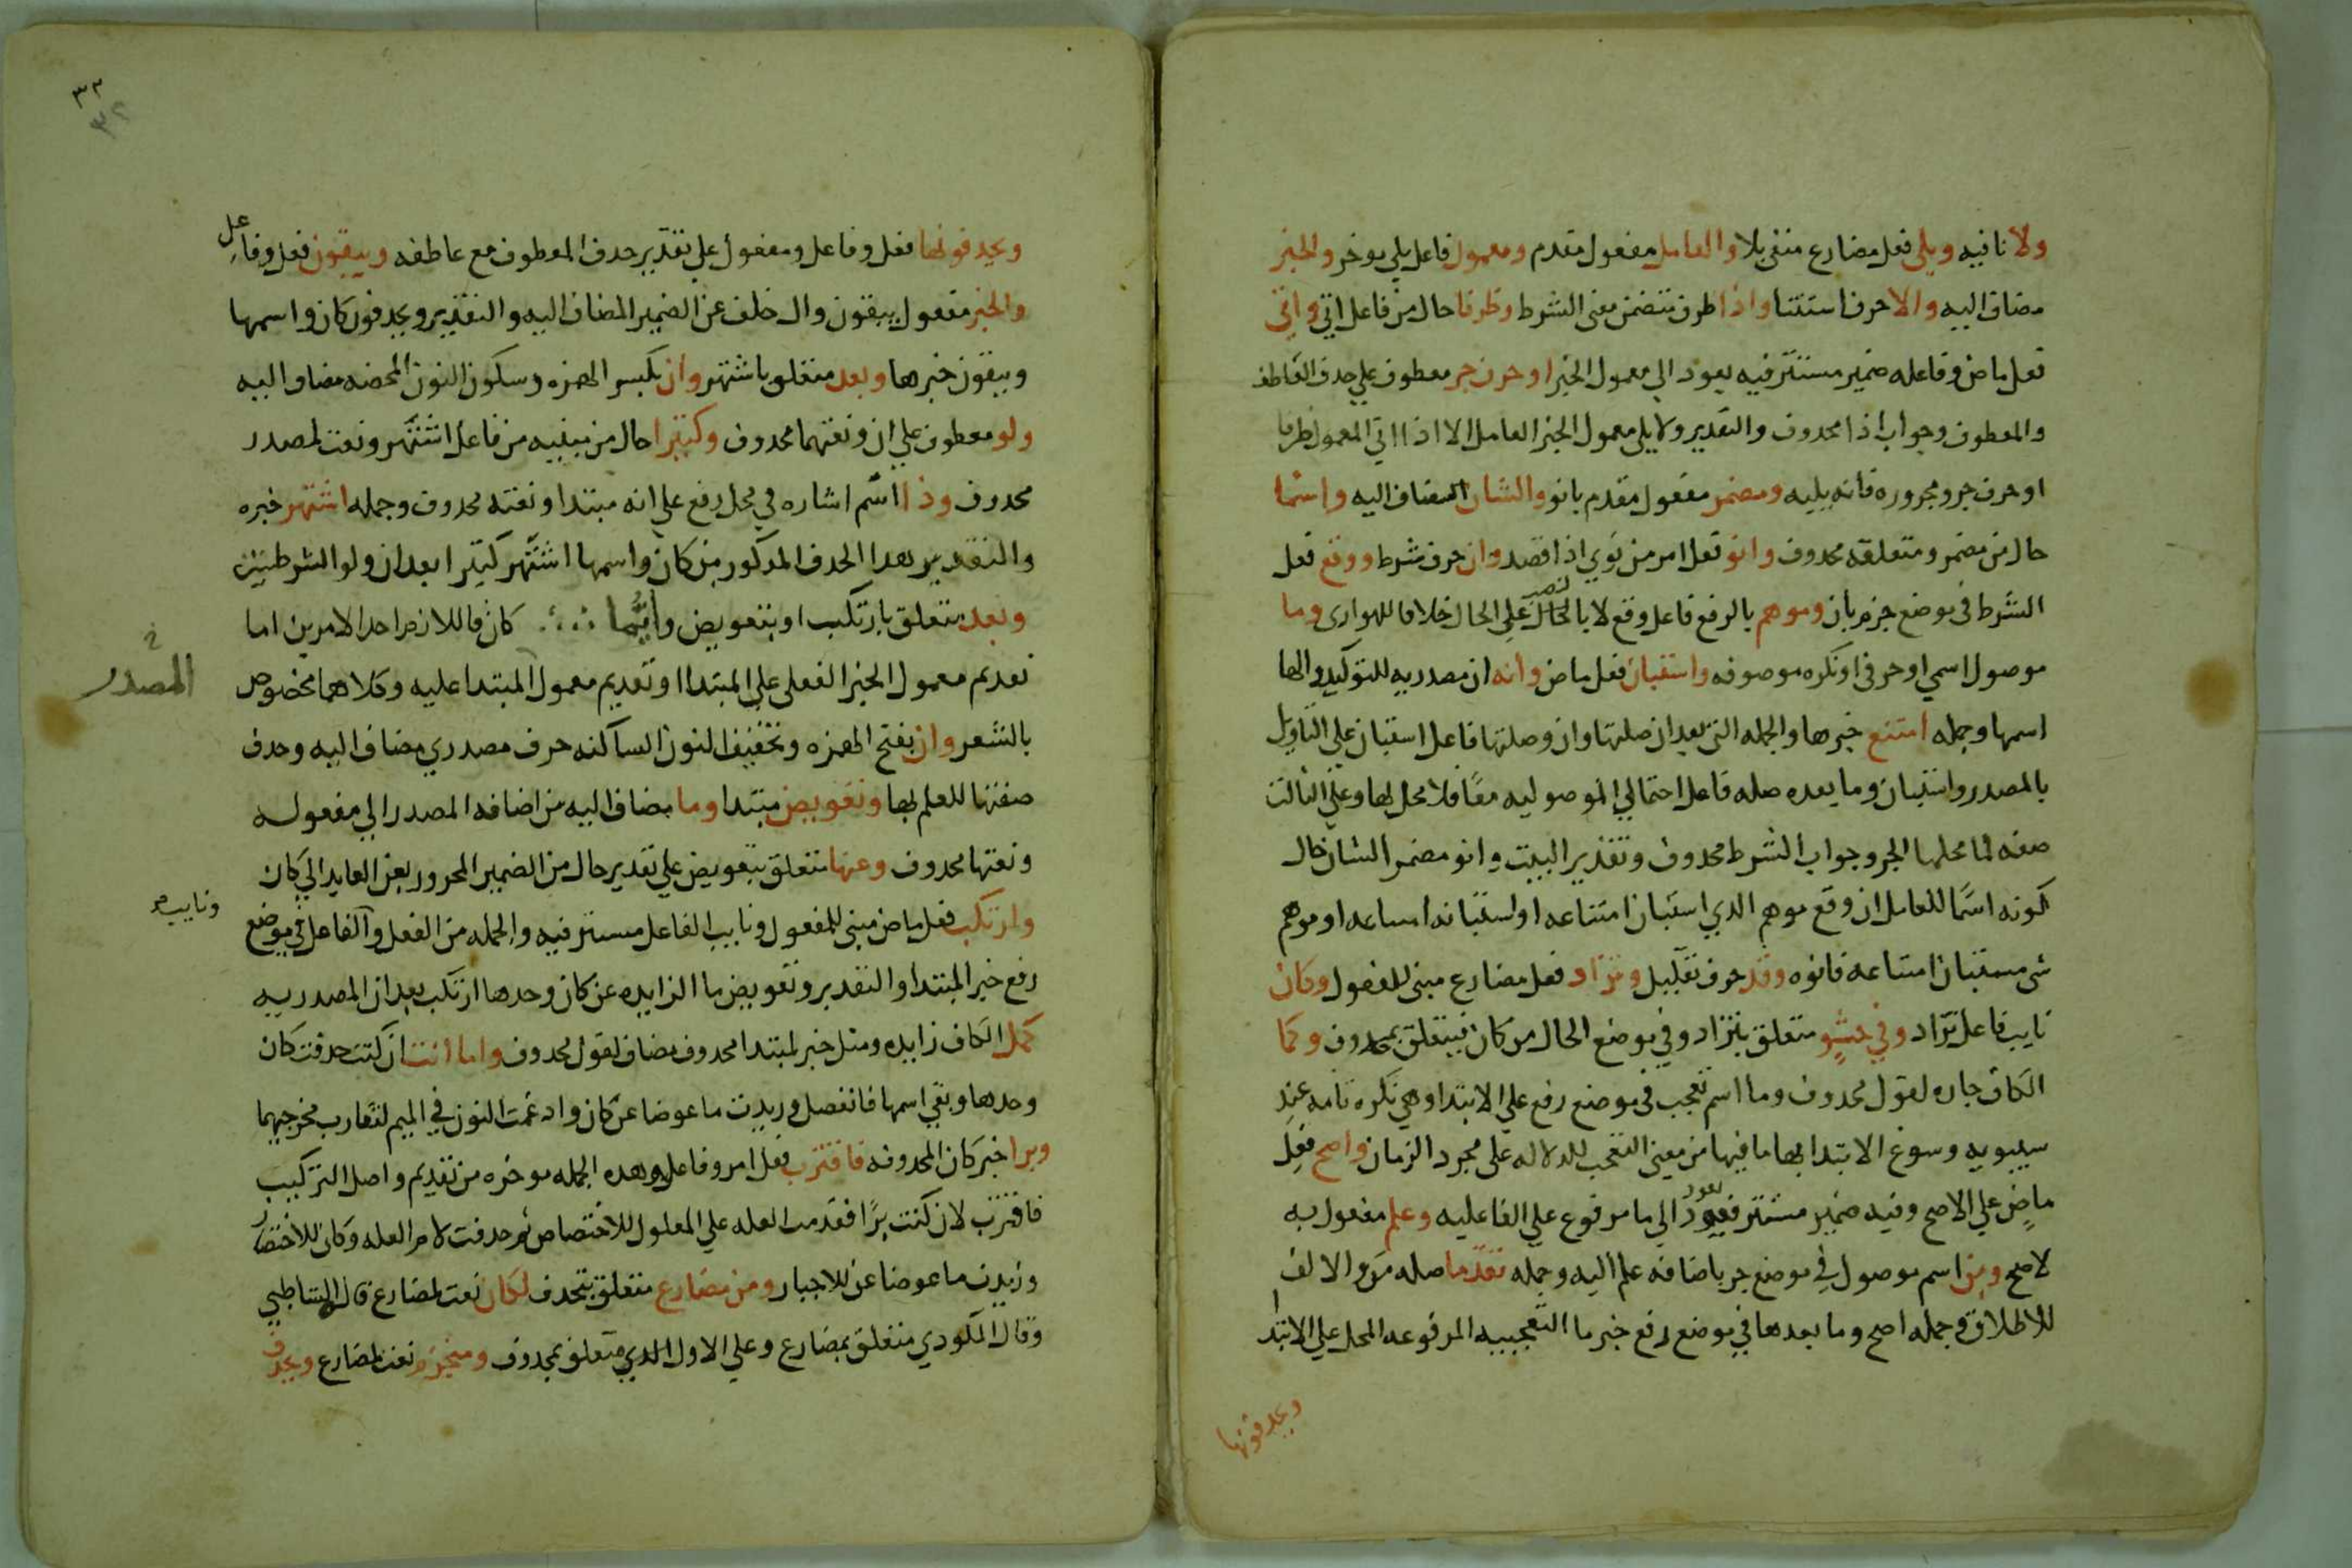 ولا نافيه ويلي فعل مضارع منفي بلا والعامل مفعول مقدم ومعمول فاعل يلي موخر والخبر
مضاف اليه والا حرف استثنا واذا ظرف تتضمن معنى الشرط وظرفا حال من فاعل اتي واتي
فعل ماض وفاعله ضمير مستتر فيه يعود الي معمول الخبر او حرف جر معطوف علي حدف العاطف
والمعطوف وجواب اذا محدوف والتقدير ولا يلي معمول الخبر العامل الا اذا اتي المعمول ظرفا
او حرف جر ومجروره فانه يليه ومضمر مفعول مقدم بانو والشان المضاف اليه واسما
حال من مضمر ومتعلقه محدوف وانو فعل امر من نوي اذا قصد وان حرف شرط ووقع فعل
الشرط في موضع جزم بان وموهم بالرفع فاعل وقع لا بالحال علي الحال خلافا للهواري وما
موصول اسمي او حرفي او نكره موصوفه واستبان فعل ماض وانه ان مصدريه للتوكيد والها
اسمها وجمله امتنع خبرها والجمله التي بعد ان صلتها وان وصلتها فاعل استبان علي التاويل
بالمصدر واستبان وما بعده صله فاعل احتمالي الموصوليه معًا فلا محل لها وعلي الثالث
صفه لما محلها الجر وجواب الشرط محدوف وتقدير البيت وانو مضمر الشان حال
كونه اسمًا للعامل ان وقع موهم الدي استبان امتناعه او استبانه امتناعه او موهم
شي مستبان امتناعه فانوه وقد حرف تقليل وتزاد فعل مضارع مبني للمفعول وكان
نايب فاعل تزاد وفي حشوٍ متعلق بتزاد وفي موضع الحال من كان فيتعلق بمحدوف وكما
الكاف جاره لقول محدوف وما اسم تعجب في موضع رفع علي الابتدا وهي نكره تامه عند
سيبويه وسوغ الابتدا بها ما فيها من معنى التعجب للدلاله علي مجرد الزمان واصح فعل
ماضٍ علي الاصح وفيه ضمير مستتر فيه يعود الي ما مرفوع علي الفاعليه وعلم مفعول به
لاصح ومن اسم موصول في موضع جر باضافه علم اليه وجمله تقدما صله من والالف
للاطلاق وجمله اصح وما بعدها في موضع رفع خبر ما التعجبيه المرفوعه المحل علي الابتدا
ويحدفونها
٣٣
٣٢
ويحدفونها فعل وفاعل ومفعول علي تقدير حدف المعطوف مع عاطفه ويبقون فعل وفاعل
والخبر مفعول يبقون وال خلف عن الضمير المضاف اليه والتقدير ويحدفون كان واسمها
ويبقون خبرها وبعد متعلق باشتهر وان بكسر الهمزه وسكون النون المحضه مضاف اليه
ولو معطوف علي ان ونعتهما محدوف وكثيرا حال من من فاعل اشتهر ونعت لمصدر
محدوف وذا اسم اشاره في محل رفع علي انه مبتدا ونعته محدوف وجمله اشتهر خبره
والتقدير هدا الحدف المدكور من كان واسمها اشتهر كثيرا بعد ان ولو الشرطيتين
وبعد متعلق بارتكب او بتعويض وايُّما كان فاللازم احد الامرين اما
تقديم معمول الخبر الفعلي علي المبتدا او تقديم معمول المبتدا عليه وكلاهما مخصوص
المصدر
بالشعر وان بفتح الهمزه وتخفيف النون الساكنه حرف مصدري مضاف اليه وحدف
صفتها للعلم بها وتعويض مبتدا وما مضاف اليه من اضافه المصدر الي مفعوله
ونعتها محدوف وعنها متعلق بتعويض علي تقدير حال من الضمير المجرور بعن العايد الي كان
ونايب
وارتكب فعل ماض مبني للمفعول ونايب الفاعل مستتر فيه والجمله من الفعل والفاعل في موضع
رفع خبر المبتدا والتقدير وتعويض ما الزايده عن كان وحدها ارتكب بعد ان المصدريه
كمثل الكاف زايده ومثل خبر لمبتدا محدوف مضاف لقول محدوف واما انت ان كنت حدفت كان
وحدها وبقي اسمها فانفصل وزيدت ما عوضا عن كان وادغمت النون في الميم لتقارب مخرجيهما
وبرا خبر كان المحدوفه فاقترب فعل امر وفاعل وهده الجمله موخره من تقديم واصل التركيب
فاقترب لان كنت برًا فقدمت العله علي المعلول للاختصاص ثم حدفت لام العله وكان للاختصار
وزيدت ما عوضا عن للاجبار ومن مضارع متعلق بتحدف لكان نعت لمضارع قال الشاطبي
وقال المكودي متعلق بمضارع وعلي الاول الدي متعلق بمحدوف ومنجزم نعت لمضارع ويحدف